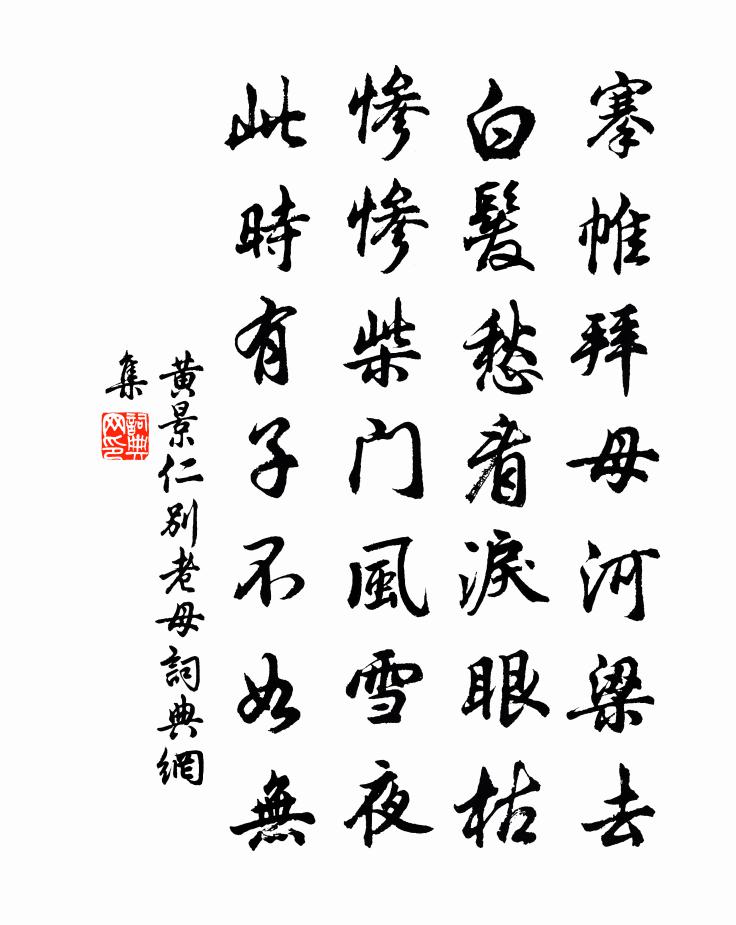 搴帷拜母河梁去
白髮愁看淚眼枯
慘慘柴門風雪夜
此時有子不如無
黄景仁别老母詞典網
集
詞典
网印